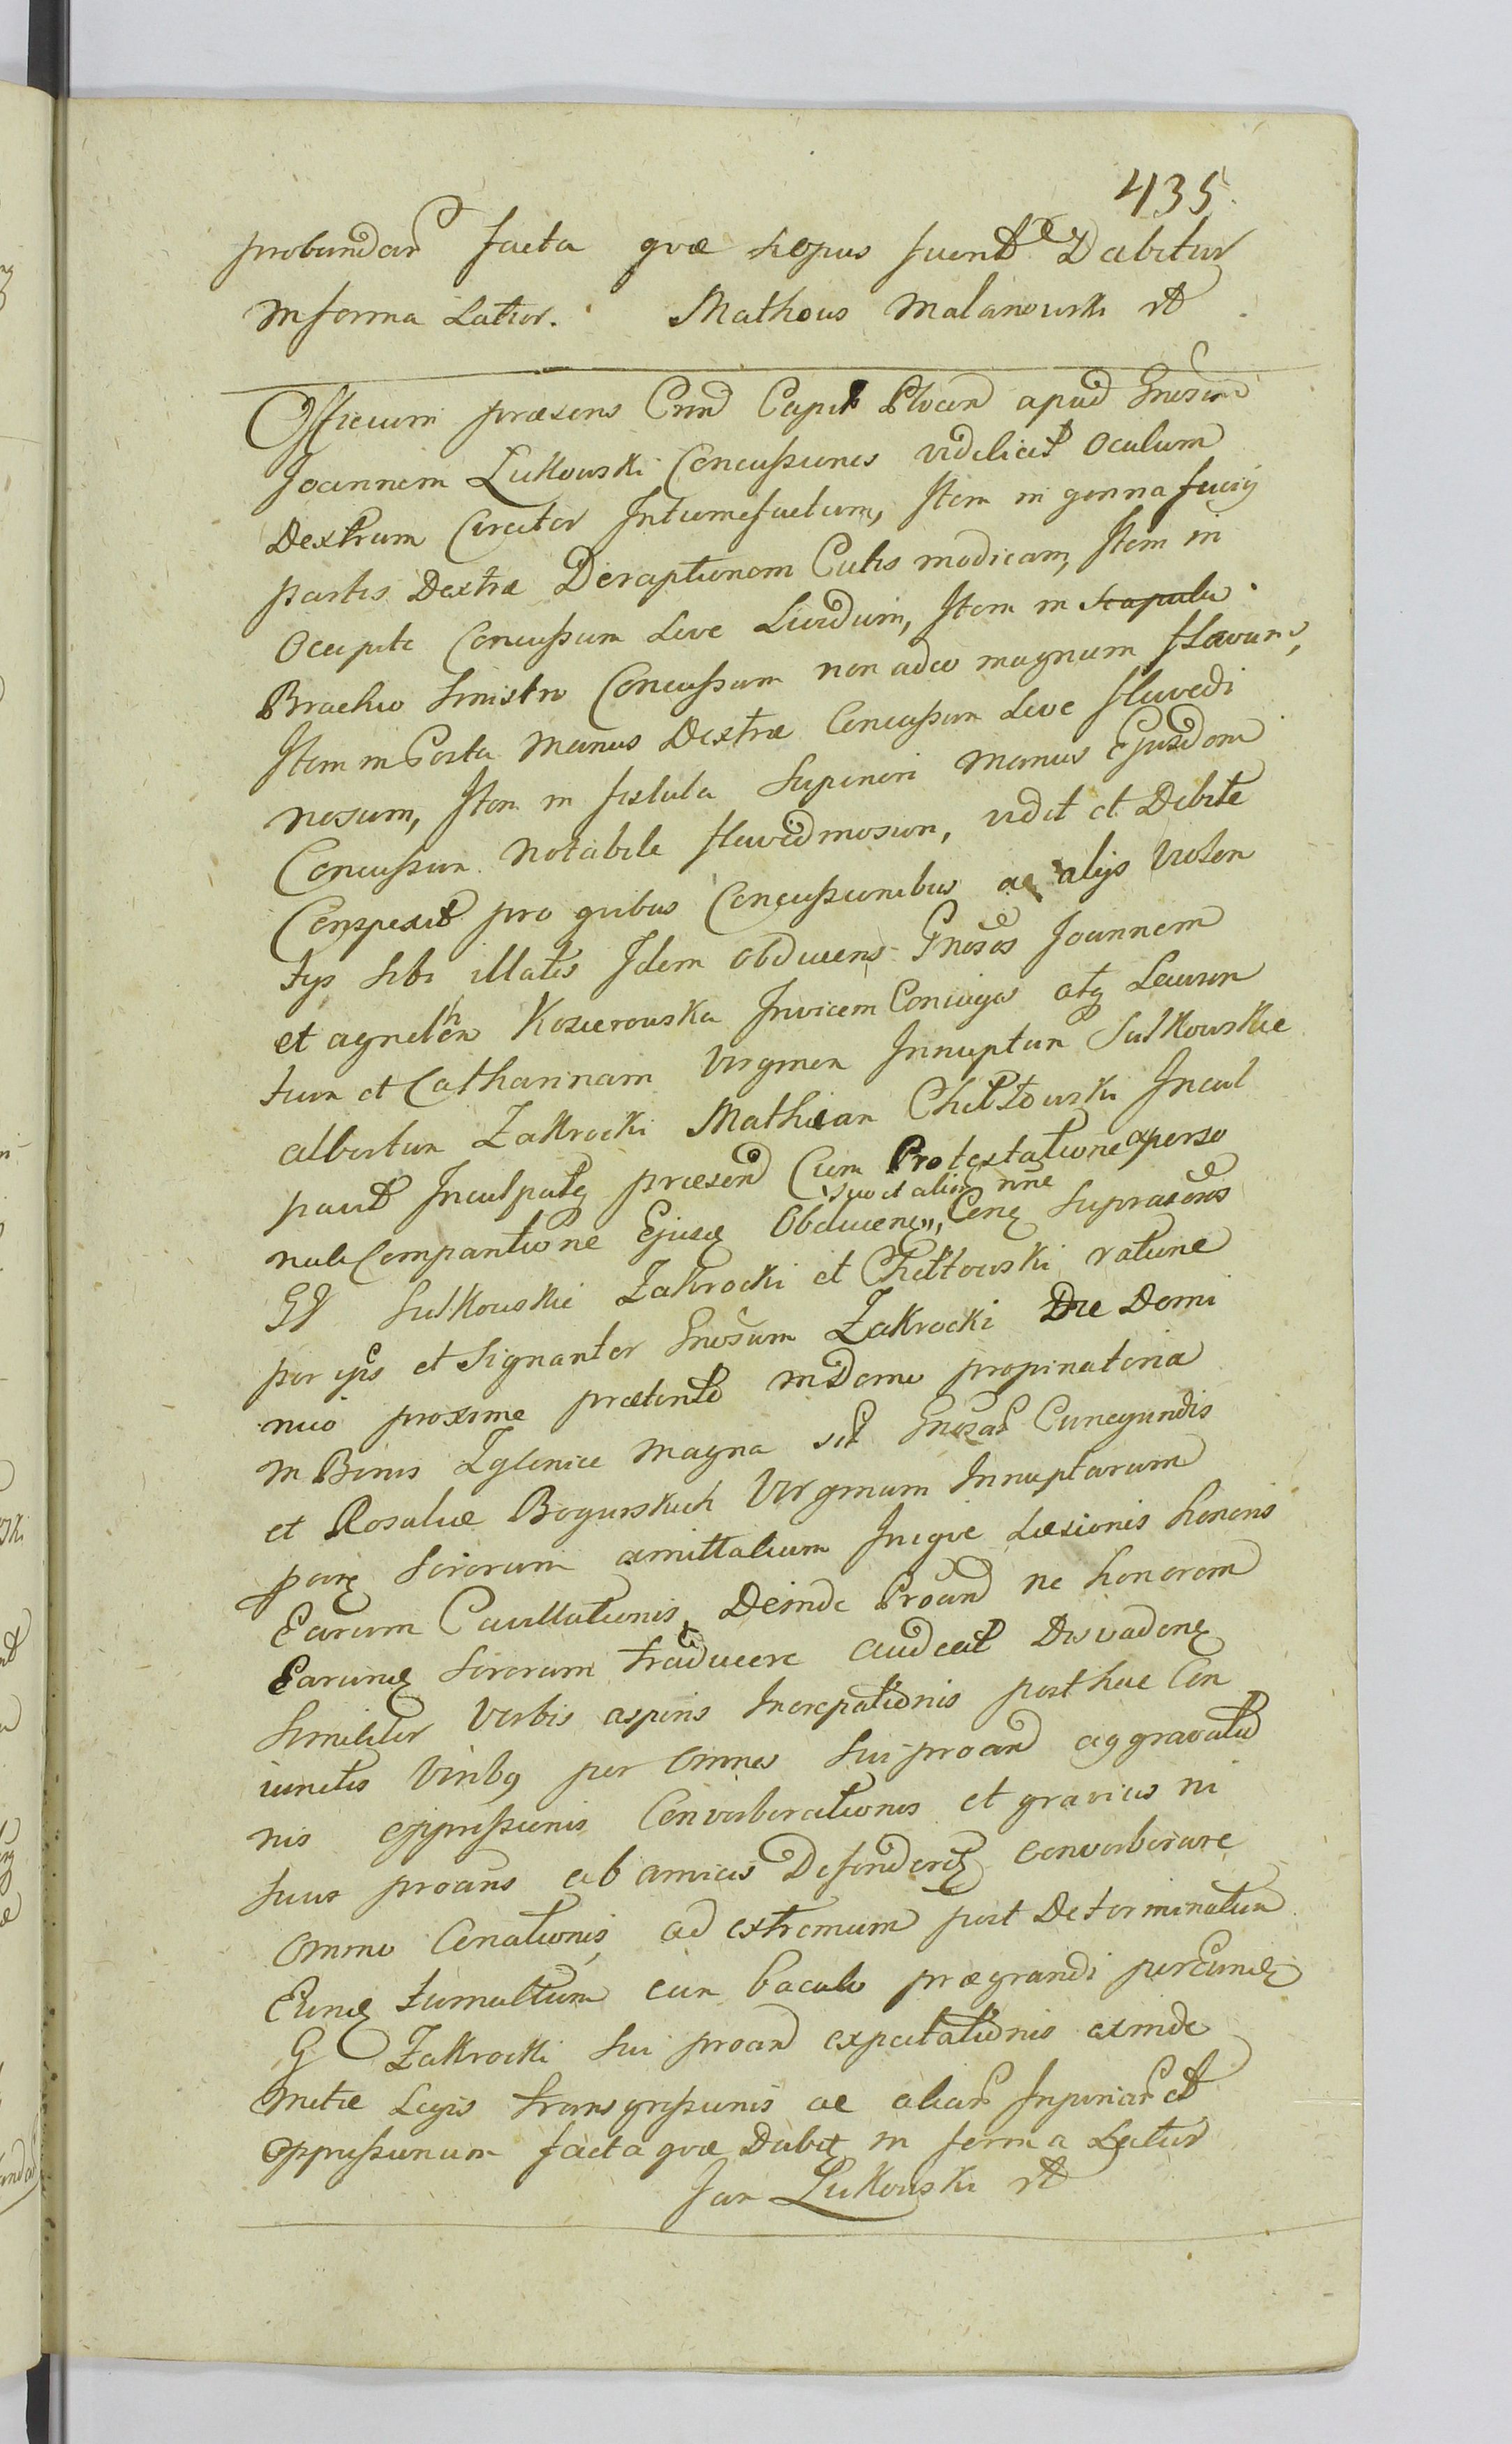 435.
probandar facta quæ si opus fuerit Dabitur
in forma Latior. Matheus Malanowski mp
Officium præsens Cnd Capit Plocen apud Gnosum
Joannem Łukowski Concussiones videlicet Oculum
Dextrum Circiter Intumefactum, Item in genna faciei
partis Dextræ Deraptionem Cutis modicam, Item in
Occipite Concussum Live Lividum, Item in scapula
Brachio Sinistro Concussum non adeo magnum flavum,
Item in Costa Manus Dextræ Concussum Leve flavedi
nosum, Item in fistula Superiori Manus Ejusdem
Concussum Notabile flavedinosum, vidit et Debite
Conspexit pro quibus Concussionibus ac alijs violen
tijs sibi illatis Idem obducens Gnosos Joannem
et agneth Kozierowska Invicem Coniuges atq Lauren
tium et Catharinam Virginem Innuptam Sutkowskie
albertum Zakrocki Mathiam Chełtowski Incul
pavit Inculpatq præsend Cum Protestatione a perso
nali Comparitione Ejusd Obducens suo et alior nne Cong supra enos
GG Sutkowskie Zakrocki et Chełtowski ratione
per ips et Signanter Gnosum Zakrocki Die Domi
nico proxime præterito in Domo propinatoria
in Bonis Zglenice Magna sit Gnosar Cunegundis
et Rosaliæ Bogurskich Virginum Innuptarum
Sororum amittalium Inique Læsionis honoris
Earum Cavillationis, Deinde Proand ne honorem
Earund Sororum traducere audeat Disvadend
Similiter Verbis asperis Increpationis post hæc Con
iunctis Viribq per omnes Sui proand aggravatio
nis oppressionis Converberationis et gravius ni
fuus proans ab amicis Defenderetq converberare
omnino Conationis, ad extremum post Determinatum
Eund tumultum cum baculo prægrandi percund
G Zakrocki Sui proand expectationis exinde
Metæ Legis transgressionis ac aliar Injuriar et
oppressionum facta quæ Dabit in forma Latior
Jan Łukowski mp